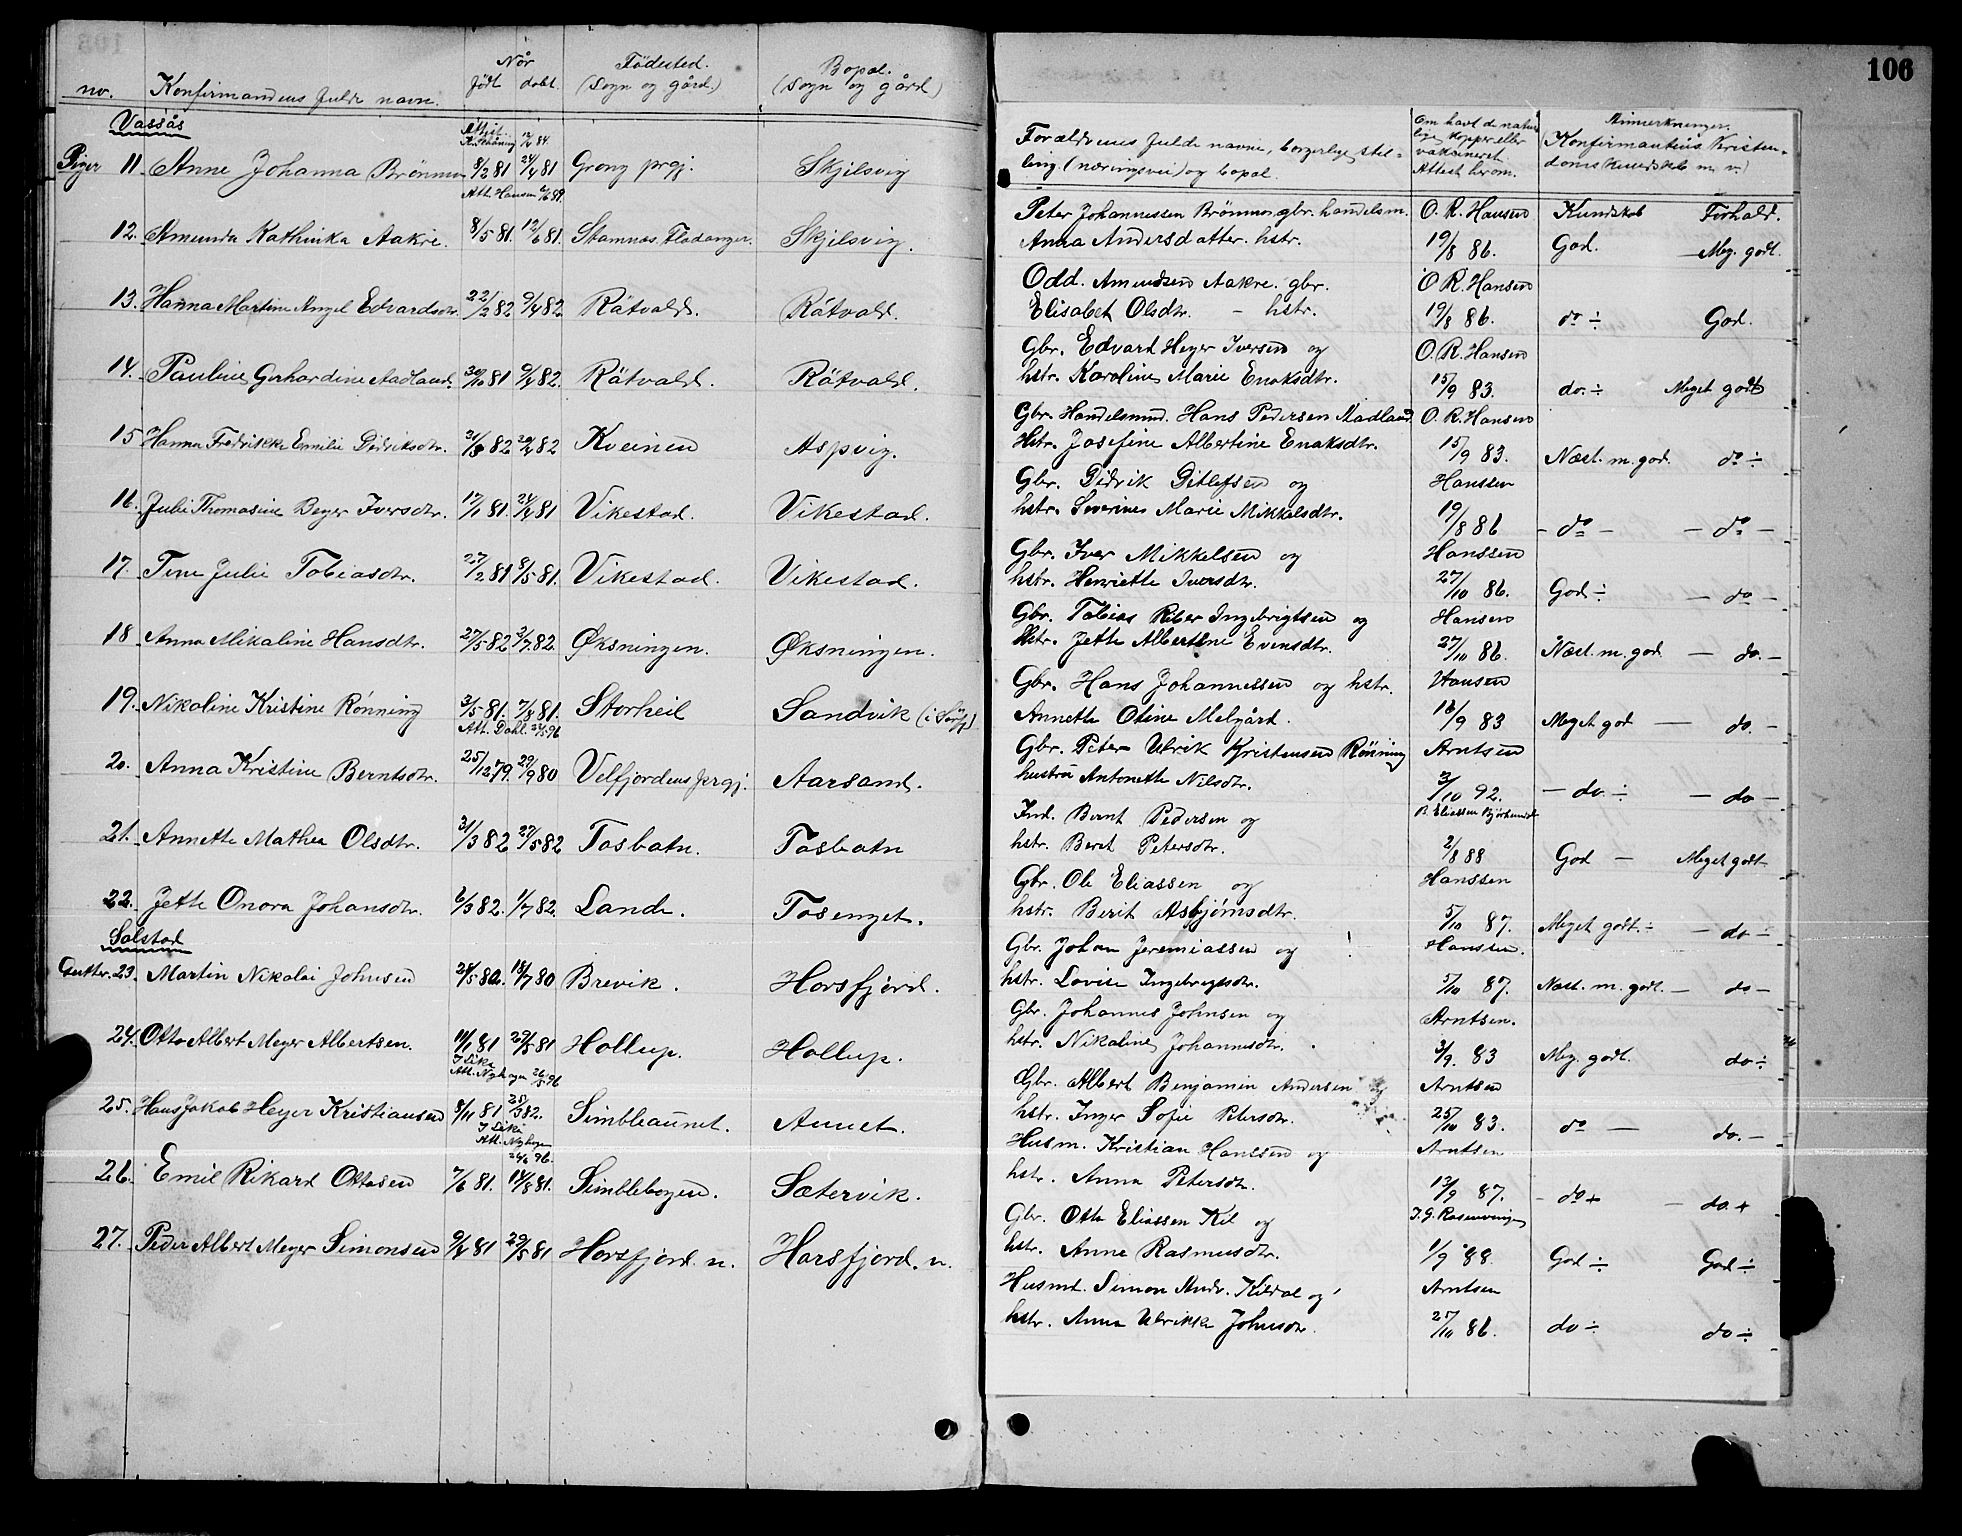 106
Når
no. Konfirmandens fulde navn. født døbt. Födested. (Sogn og gård.) Bopæl. (Sogn og gård)
Vassås
Attest. 84.
Piger 11. Anne Johanna Brönmo 8/2 81 24/4 81 Grong prgj. Skjelsvig
Att. Hansen
12. Amunda Kathinka Aakre. 8/5 81. 12/6 81. Stamnæs, Fladanger. Skjelsvig.
13. Hanna Martine Angel Edvardsdtr. 22/2 82 9/4 82. Råtvald. Råtvald.
14. Pauline Gerhardine Aadland. 30/10 81 9/4 82. Råtvald. Råtvald.
15 Hanna Fredrikke Emilie Didriksdtr. 82 82 Kveinen Aspvig.
16. Julie Thomasine Beyer Iversdtr. 17/1 81. 24/4 81 Vikestad. Vikestad.
17. Tine Julie Tobiasdtr. 27/2 81 8/5 81. Vikestad. Vikestad.
18 Anna Mikaline Hansdtr. 27/5 82 2/7 82. Øksningen. Øksningen.
19. Nikoline Kristine Rønning 3/5 81. 7/8 81. Storheil Sandvik
Att. Dahl.
20. Anna Kristine Berntsdtr. 25/12 79. 29/9 80 Velfjordens prgj. Aarsand.
21. Annette Mathea Olsdtr. 31/3 82 29/5 82 Tosbotn. Tosbotn
22. Jette Onora Johansdtr. 6/3 82. 1/7 82. Lande. Tosenget.
Solstad
Gutter. 23. Martin Nikolai Johnsen 28/5 80. 18/7 80 Brevik. Horsfjord.
24. Otto Albert Meyer Albertsen. 11/1 81 29/5 81 Hollup. Hollup.
Att. Nyhagen 96
25. Hans Jakob Heyer Kristiansen 8/11 81 82. Simbleaunet. Aunet.
Att. Nyhagen
96.
26. Emil Rikard Ottosen 7/6 81. 14/8 81. Simblebogen. Sætervik.
27. Peder Albert Meyer Simonsen 9/4 81 29/5 81 Horsfjord. n. Horsfjord. n.
Forældrenes fulde navne, borgerlige stilling (næringsvei) og bopæl. Om havt de naturlige kopper eller vaksineret Attest herom. Anmerkninger. Konfirmantens Kristendomskundskab m. v.)
Peter Johannessen Brönmo gbr. handelsm. O. R. Hansen Kundskab Forhold.
Anna Andersdatter. hstr. 19/8 86. God. Meg. godt.
Odd. Amundsen Aakre. gbr. O R. Hansen
Elisabet Olsdtr. - hstr. 19/8 86. do ÷ God.
Gbr. Edvard Heyer Iversen og O. R. Hansen
hstr. Karoline Marie Enoksdtr. 15/9 83. do. ÷ Meget godt
Gbr. Handelsmd. Hans Pedersen Aadland O. R. Hansen
Hstr. Josefine Albertine Enoksdtr. 15/9 83. Næst. m. god. do ÷
Gbr. Didrik Ditlefsen og Hanssen
hstr. Severine Marie Mikkelsdtr. 19/8 86 - do - - do -
Gbr. Iver Mikkelsen og Hanssen
hstr. Henriette Iversdtr. 27/10 86. God ÷ - do -
Gbr. Tobias Riber Ingebrigtsen og Hansen
Hstr. Jette Albertine Evensdtr. 27/10 86. Næst. m. god. - do. -
Gbr. Hans Johannessen og hstr. Hansen
Annette Otine Melgård. 18/9 83 Meget god - do. -
Gbr. Peter Ulrik Kristensen Rönning Arntsen
hustru Antonette Nilsdtr. 3/10 92. - do. ÷ - do -
Ind. Bernt Pedersen og B. Eliassen
hstr. Beret Petersdtr. 2/8 88 God - Meget godt
Gbr. Ole Eliassen og Hanssen
hstr. Berit Asbjörnsdtr. 5/10 87. Meget godt. ÷ - do ÷
Gbr. Johan Jeremiassen og Hanssen.
hstr. Lovise Ingebrigtsdtr. 5/10 87. Næst. m. godt. - do -
Gbr. Johannes Johnsen og Arntsen.
hstr. Nikoline Johannesdtr. 3/9. 83 Meg. godt. do ÷
Gbr. Albert Benjamin Andersen og Arntsen
hstr. Inger Sofie Petersdtr. 25/10 83. do - do. -
Husm. Kristian Hanssen og Arntsen
hstr. Anna Petersdtr. 13/9 87. - do + - do. +
Gbr. Otto Eliassen Kil og
hstr. Anne Rasmusdtr. 1/9 88. God ÷ God ÷
Husmd. Simon Andr. Kildal og Arntsen
hstr. Anna Ulrikke Johnsdtr. 25/10 86. do ÷ do ÷